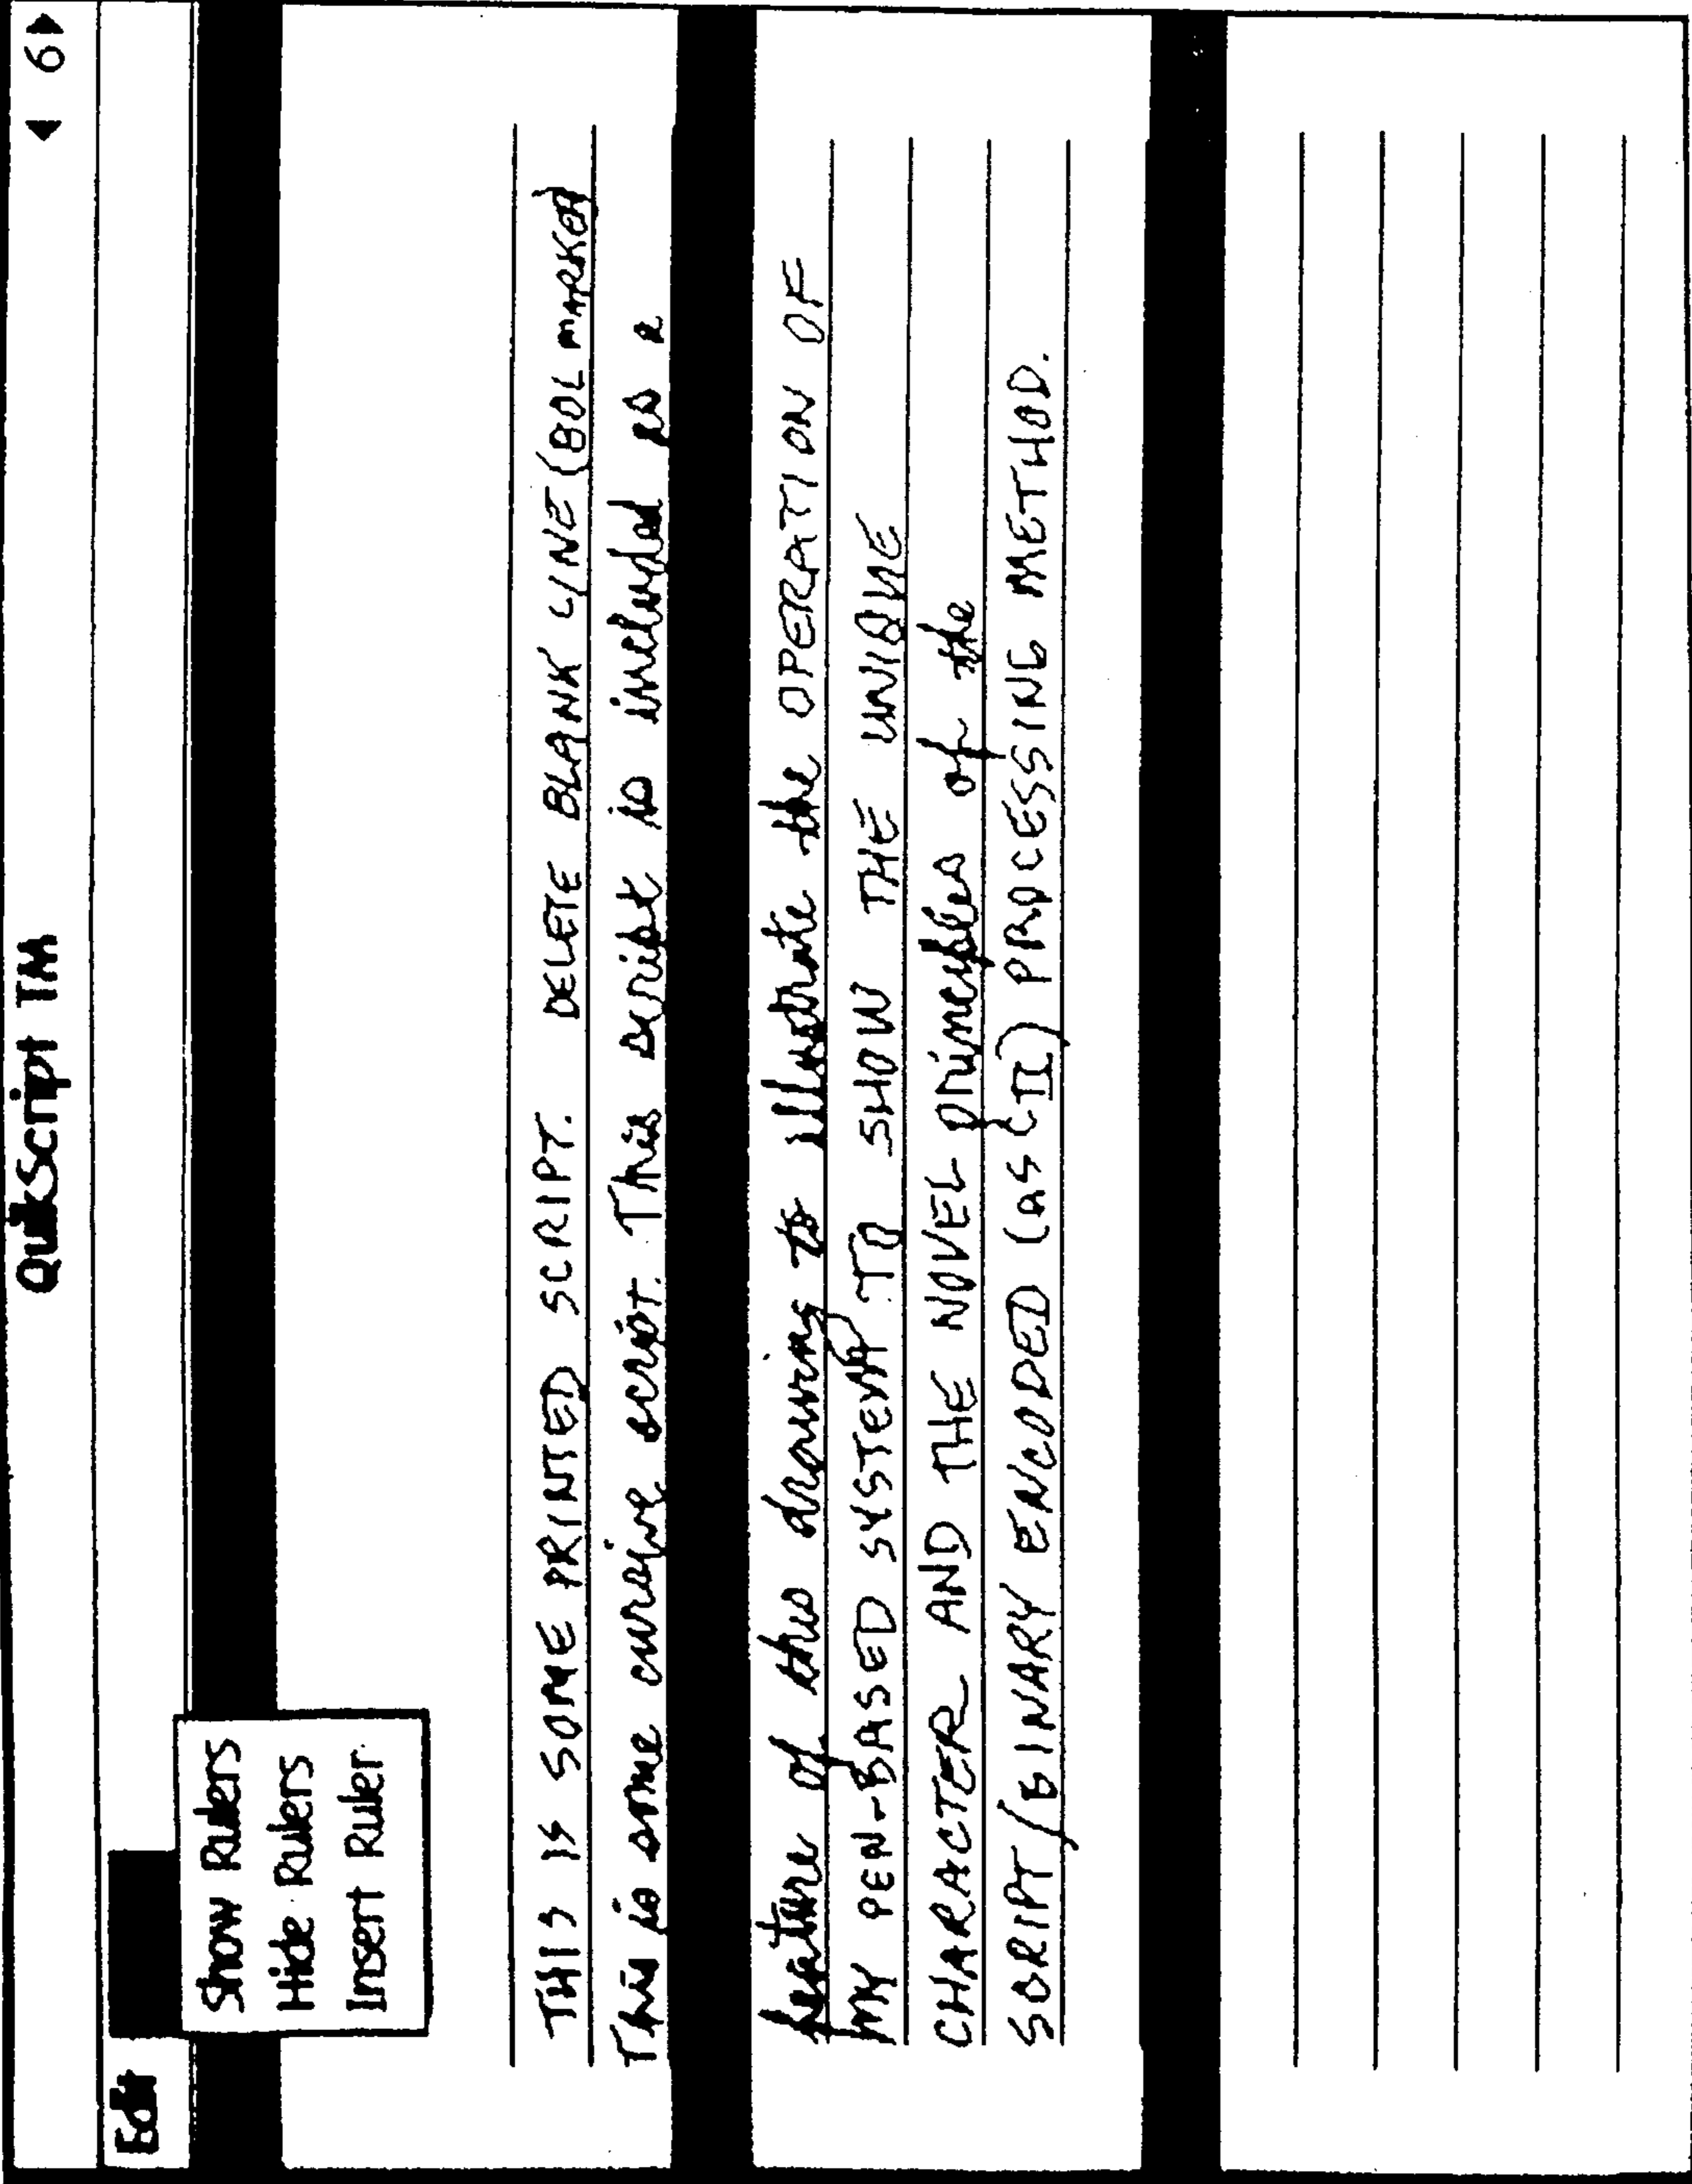 QuikScript TM
◀ 6 ▶
Edit
Show Rulers
Hide Rulers
Insert Ruler
THIS IS SOME PRINTED SCRIPT. DELETE BLANK LINE (BOL MARKER
This is some cursive script. This script is included as a
feature of this drawing to illustrate the OPERATION OF
MY PEN-BASED SYSTEM TO SHOW THE UNIQUE
CHARACTER AND THE NOVEL principles of the
SCRIPT/BINARY ENCODED (ASCII) PROCESSING METHOD.